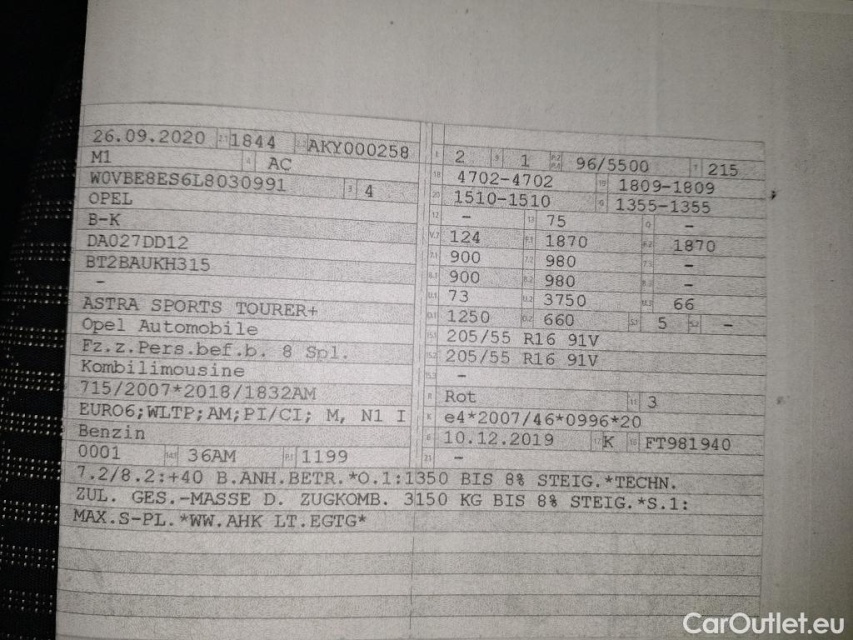 26.09.2020 1844 AKY000258
M1 AC
W0VBE8ES6L8030991 4
OPEL
B-K
DA027DD12
BT2BAUKH315
-
ASTRA SPORTS TOURER+
Opel Automobile
Fz.z.Pers.bef.b. 8 Spl.
Kombilimousine
715/2007*2018/1832AM
EURO6;WLTP;AM;PI/CI; M, N1 I
Benzin
0001 36AM 1199
2 1 96/5500 215
4702-4702 1809-1809
1510-1510 1355-1355
- 75 -
124 1870 1870
900 980 -
900 980 -
73 3750 66
1250 660 5 -
205/55 R16 91V
205/55 R16 91V
-
Rot 3
e4*2007/46*0996*20
10.12.2019 K FT981940
-
7.2/8.2:+40 B.ANH.BETR.*O.1:1350 BIS 8% STEIG.*TECHN.
ZUL. GES.-MASSE D. ZUGKOMB. 3150 KG BIS 8% STEIG.*S.1:
MAX.S-PL.*WW.AHK LT.EGTG*
CarOutlet.eu